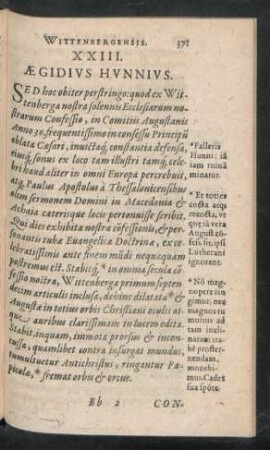 WITTENBERGENSIS. 371
XXIII.
ÆGIDIVS HVNNIVS.
SED hoc obiter perstringo: quod ex Wit-
tenberga nostra solennis Ecclesiarum no-
strarum Confessio, in Comitiis Augustanis
Anno 30. frequentissimo in consessu Principũ
oblata Cæsari, inuictaq́; constantia defensa,
eiusq́; sonus ex loco tam illustri tamq́; cele-
bri haud aliter in omni Europa percrebuit,
atq; Paulus Apostolus à Thessalonicensibus
olim sermonem Domini in Macedonia &
Achaia cæterisque locis personuisse scribit.
Qui dies exhibitæ nostræ cõfessionis, & per-
sonantis tubæ Euangelicæ Doctrinæ, ex ce-
lebratissimis ante finem mũdi nequaquam
postremus erit. Stabitq́; * in omnia secula cõ-
fessio nostra, Wittenberga primum septen-
decim articulis inclusa, deinde dilatata* &
Augusta in totius orbis Christiani oculis at-
que auribus clarissimam in lucem edita.
Stabit, inquam, immota prorsus & incon-
cussa, quamlibet contra insurgat mundus,
tumultuetur Antichristus, ringantur Pa-
picolæ, * fremat orbis & orcus.
*Falleris
Hunni: iã
iam ruinã
minatur.
* Et toties
cocta acq;
recocta, ve
que iã vera
August. cõ-
fess. sit, ipsi
Lutherani
ignorent.
* Nõ mag-
nopere rin
gimur, neq́;
magnos tu
muitus ad
tam incli-
natam tra-
bẽ proster-
nendam,
mouebi-
mus. Cadet
sua spõte.
Bb 2 CON-